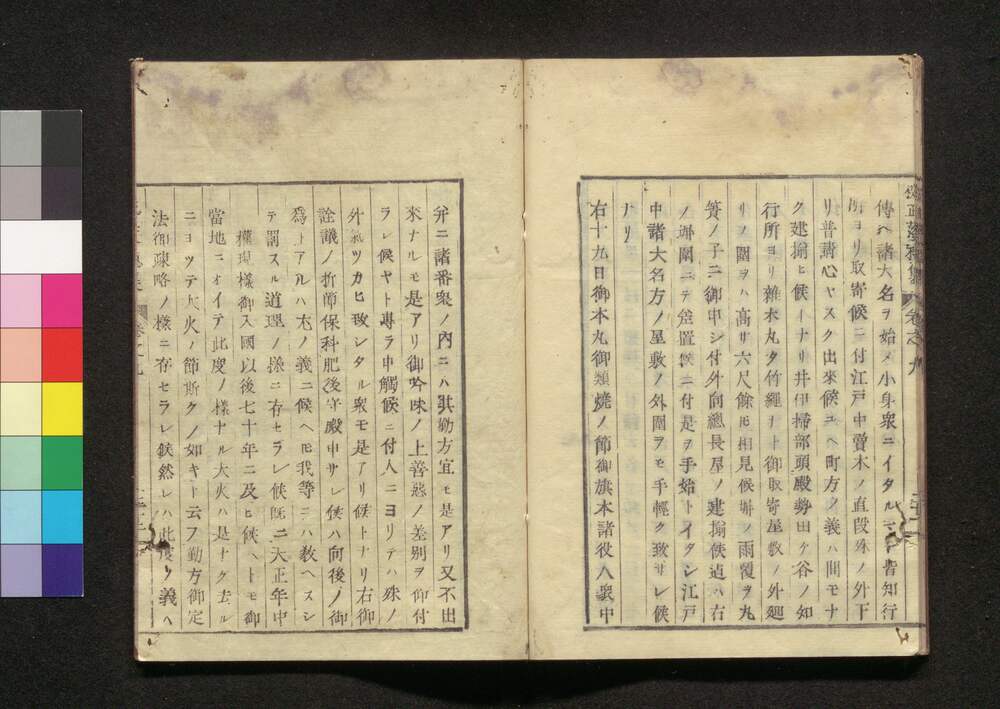 傳ヘ諸大名ヲ始メ小身衆ニイタルマデ皆知行
所ヨリ取寄候ニ付江戸中賣木ノ直段殊ノ外下
リ普請心ヤスク出來候ユヘ町方ノ義ハ間モナ
ク建揃ヒ候ナリ井伊掃部頭殿勢田ケ谷ノ知
行所ヨリ雜木丸タ竹繩ナト御取寄屋敷ノ外廻
リノ圍ヲハ高サ六尺餘モ相見候塀ノ雨覆ヲ丸
簀ノ子ニ御申シ付外向總長屋ノ建揃候迠ハ右
ノ塀圍ニテ差置候ニ付是ヲ手始トイタシ江戸
中諸大名方ノ屋敷ノ外圍ヲモ手輕ク致サレ候
ナリ
右十九日御本丸御類燒ノ節御旗本諸役人衆中
弁ニ諸番衆ノ内ニハ其勤方宜モ是アリ又不出
來ナルモ是アリ御吟味ノ上善惡ノ差別ヲ仰付
ラレ候ヤト專ラ申觸候ニ付人ニヨリテハ殊ノ
外氣ツカヒ致シタル衆モ是アリ候トナリ右御
詮議ノ折節保科肥後守殿申サレ候ハ向後ノ御
爲トアルハ尤ノ義ニ候ヘトモ我等ニハ教ヘスシ
テ罰スル道理ノ樣ニ存セラレ候既ニ天正年中
權現樣御入國以後七十年ニ及ヒ候ヘトモ御
當地ニオイテ此度ノ樣ナル大火ハ是ナク去ル
ニヨツテ大火ノ節斯クノ如キト云フ勤方御定
法御疎略ノ樣ニ存セラレ候然レハ此度ノ義ヘ